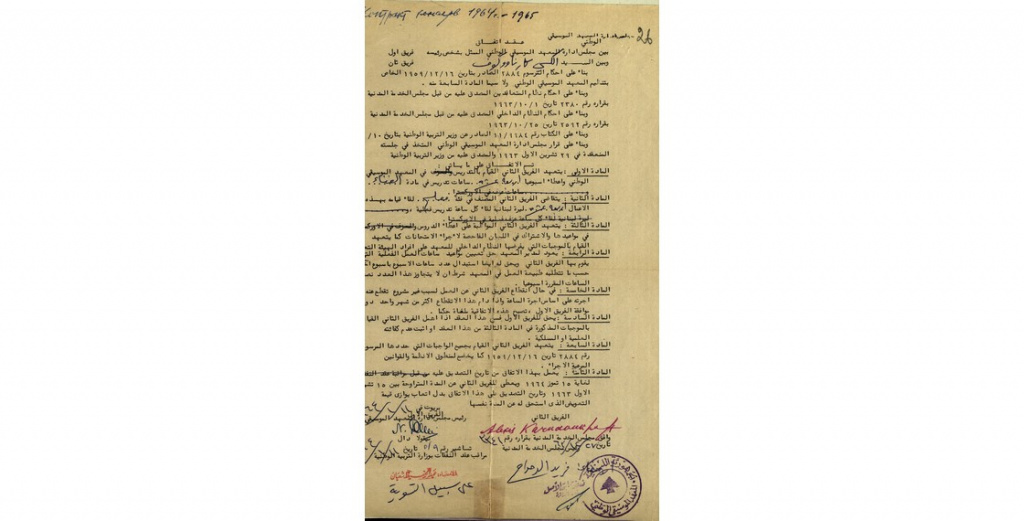 Контракт 1964 г. - 1965
26
المعهد الموسيقي
الوطني عقد اتفاق
بين مجلس ادارة المعهد الموسيقي الوطني الممثل بشخص رئيسه فريق اول
وبين السيد فريق ثان
بناء على احكام المرسوم ٢٨٨٤ الصادر بتاريخ ١٩٥٩/١٢/١٦ الخاص
بتنظيم المعهد الموسيقي الوطني ولا سيما المادة السابعة منه ٠
وبناء على احكام نظام المتعاقدين المصدق عليه من قبل مجلس الخدمة المدنية
بقراره رقم ٢٣٨٠ تاريخ ١٩٦٣/١٠/١
وبناء على احكام النظام الداخلي المصدق عليه من قبل مجلس الخدمة المدنية
بقراره رقم ٢٥٦٢ تاريخ ١٩٦٣/١٠/٢٥
وبناء على الكتاب رقم الصادر عن وزير التربية الوطنية بتاريخ ١٠/
وبناء على قرار مجلس ادارة المعهد الموسيقي الوطني المتخذ في جلسته
المنعقدة في ٢٦ تشرين الاول ١٩٦٣ والمصدق عليه من وزير التربية الوطنية
تم الاتفاق على ما يأتي :
المادة الاولى : يتعهد الفريق الثاني القيام بالتدريس في المعهد الموسيقي
الوطني واعطاء اسبوعيا ساعات تدريس في مادة
ساعات عزف في الاوركسترا
المادة الثانية : يتقاضى الفريق الثاني لقاء قيامه بهذه
الاعمال ليرة لبنانية لقاء كل ساعة تدريس فعلية و
ليرة لبنانية لقاء كل ساعة عزف فعلية في الاوركسترا
المادة الثالثة : يتعهد الفريق الثاني المواظبة على اعطاء الدروس والعزف في الاورك
في مواعيدها والاشتراك في اللجان الفاحصة لاجراء الامتحانات كما يتعهد
القيام بالموجبات التي يفرضها النظام الداخلي للمعهد على افراد الهيئة الت
المادة الرابعة : يعود لمدير المعهد حق تعيين مواعيد ساعات العمل الفعلية الت
يقوم بها الفريق الثاني ويحق له ايضا استبدال عدد ساعات الاسبوع باسبوع
حسب ما تتطلبه طبيعة العمل في المعهد شرط ان لا يتجاوز هذا العدد
الساعات المقررة اسبوعيا ٠
المادة الخامسة : في حال انقطاع الفريق الثاني عن العمل لسبب غير مشروع تقطع عنه
اجرته على اساس اجرة الساعة واذا دام هذا الانقطاع اكثر من شهر واحد دو
موافقة الفريق الاول وتصبح هذه الاتفاقية ملغاة حكما ٠
المادة السادسة : يحق للفريق الاول فسخ هذا العقد اذا اهمل الفريق الثاني القيا
بالموجبات المذكورة في المادة الثالثة من هذا العقد او اثبت عدم كفائته
العلمية او المسلكية ٠
المادة السابعة : يتعهد الفريق الثاني القيام بجميع الواجبات التي حددها المرسو
رقم ٢٨٨٤ تاريخ ١٩٥٩/١٢/١٦ كما يخضع لمنطوق الانظمة والقوانين
المرعية الاجراء ٠
المادة الثامنة : يعمل بهذا الاتفاق من تاريخ التصديق عليه من قبل
لغاية ١٥ تموز ١٩٦٤ ويعطى الفريق الثاني عن المدة المتراوحة بين ١٥ تش
الاول ١٩٦٣ وتاريخ التصديق على هذا الاتفاق بدل اتعاب يوازي قيمة
التعويض الذي استحق له عن المدة نفسها
بيروت في
الفريق الاول الفريق الثاني
رئيس مجلس ادارة المعهد الموسيقي
وافق مجلس الخدمة المدنية بقراره رقم
تاريخ
رئيس مجلس الخدمة المدنية
مراقب عقد النفقات بوزارة التربية الوطنية
على سبيل التسوية